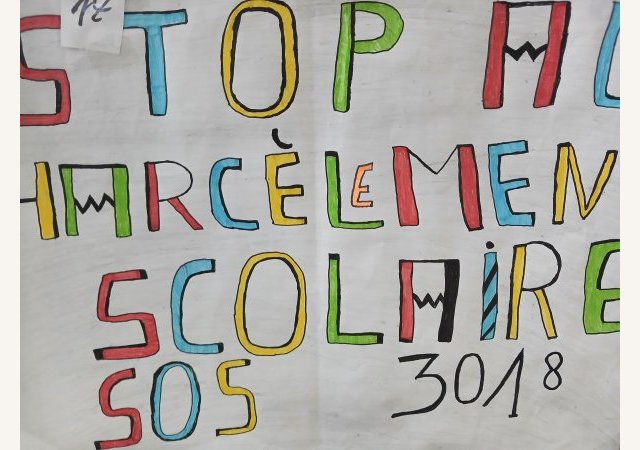 17
STOP AU
HARCÈLEMEN
SCOLAIRE
SOS 3018